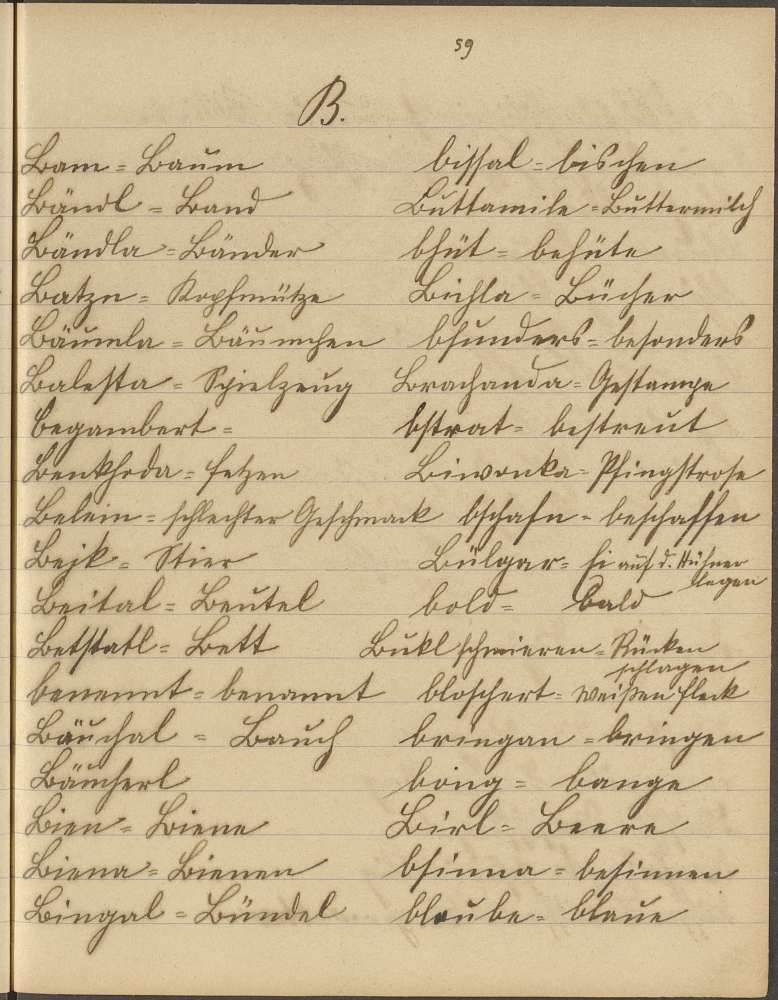 59
B.
Bam = Baum
Bändl = Band
Bändla = Bänder
Batzn = Kopfmütze
Bäumla = Bäumchen
Balesta = Spielzeug
begambert =
Benkhoda = fetzen
Belein = schlechter Geschmack
Bejk = Stier
Beital = Beutel
Betstatl = Bett
benennt = benannt
Bäuchal = Bauch
Bäucherl
Bien = Biene
Biena = Bienen
Bingal = Bündel
bissal = bischen
Buttamile = Buttermilch
bhüt = behüte
Bichla = Bücher
bsunders = besonders
Brachanda = Gestampe
bstrat = bestreut
Biwonka = Pfingstrose
bschafn = beschaffen
Bülgar = Ei auf d. Hühner
legen
bold = bald
Bukl schmieren = Rücken
schlagen
bloschert = weißen Fleck
bringan = bringen
bong = bange
Birl = Beere
bsinna = besinnen
bloube = blaue